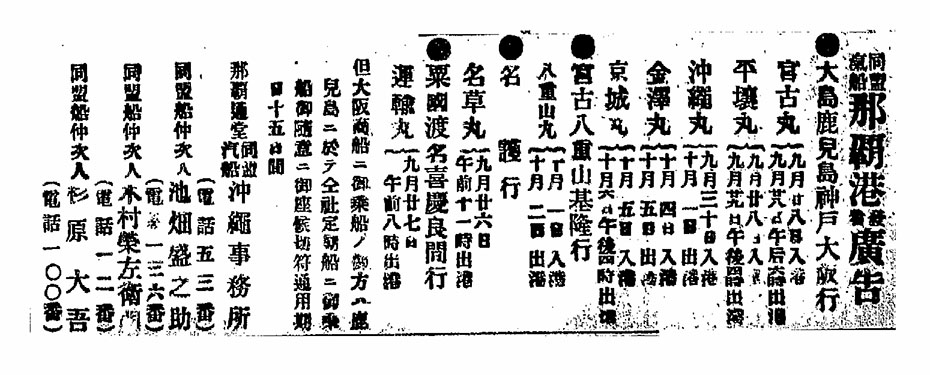 同盟汽船那覇港發着廣告
●大島鹿兒島神戸大阪行
宮古丸 九月廿八日入港
九月廿九日午后六時出港
平壤丸 九月廿八日入港
九月廿九日午後四時出港
沖繩丸 九月三十日入港
十月 一日 出港
金澤丸 十月 四日 入港
十月 五日 出港
京城丸 十月 五日 入港
十月六日午後四時出港
●宮古八重山基隆行
八重山丸 十月 一日 入港
十月 二日 出港
●名護行
名草丸 九月廿六日
午前十一時出港
●粟國渡名喜慶良間行
運輸丸 九月廿七日
午前八時出港
但大阪商船ニ御乘船ノ御方ハ鹿
兒島ニ於テ仝社定期船ニ御乘
船御隨意ニ御座候切符通用期
日十五日間
那覇通堂 同盟汽船 沖繩事務所
(電話五三番)
同盟船仲次人 池畑盛之助
(電話一三六番)
同盟船仲次人 木村榮左衛門
(電話一二番)
同盟船仲次人 杉原大吾
(電話一〇〇番)